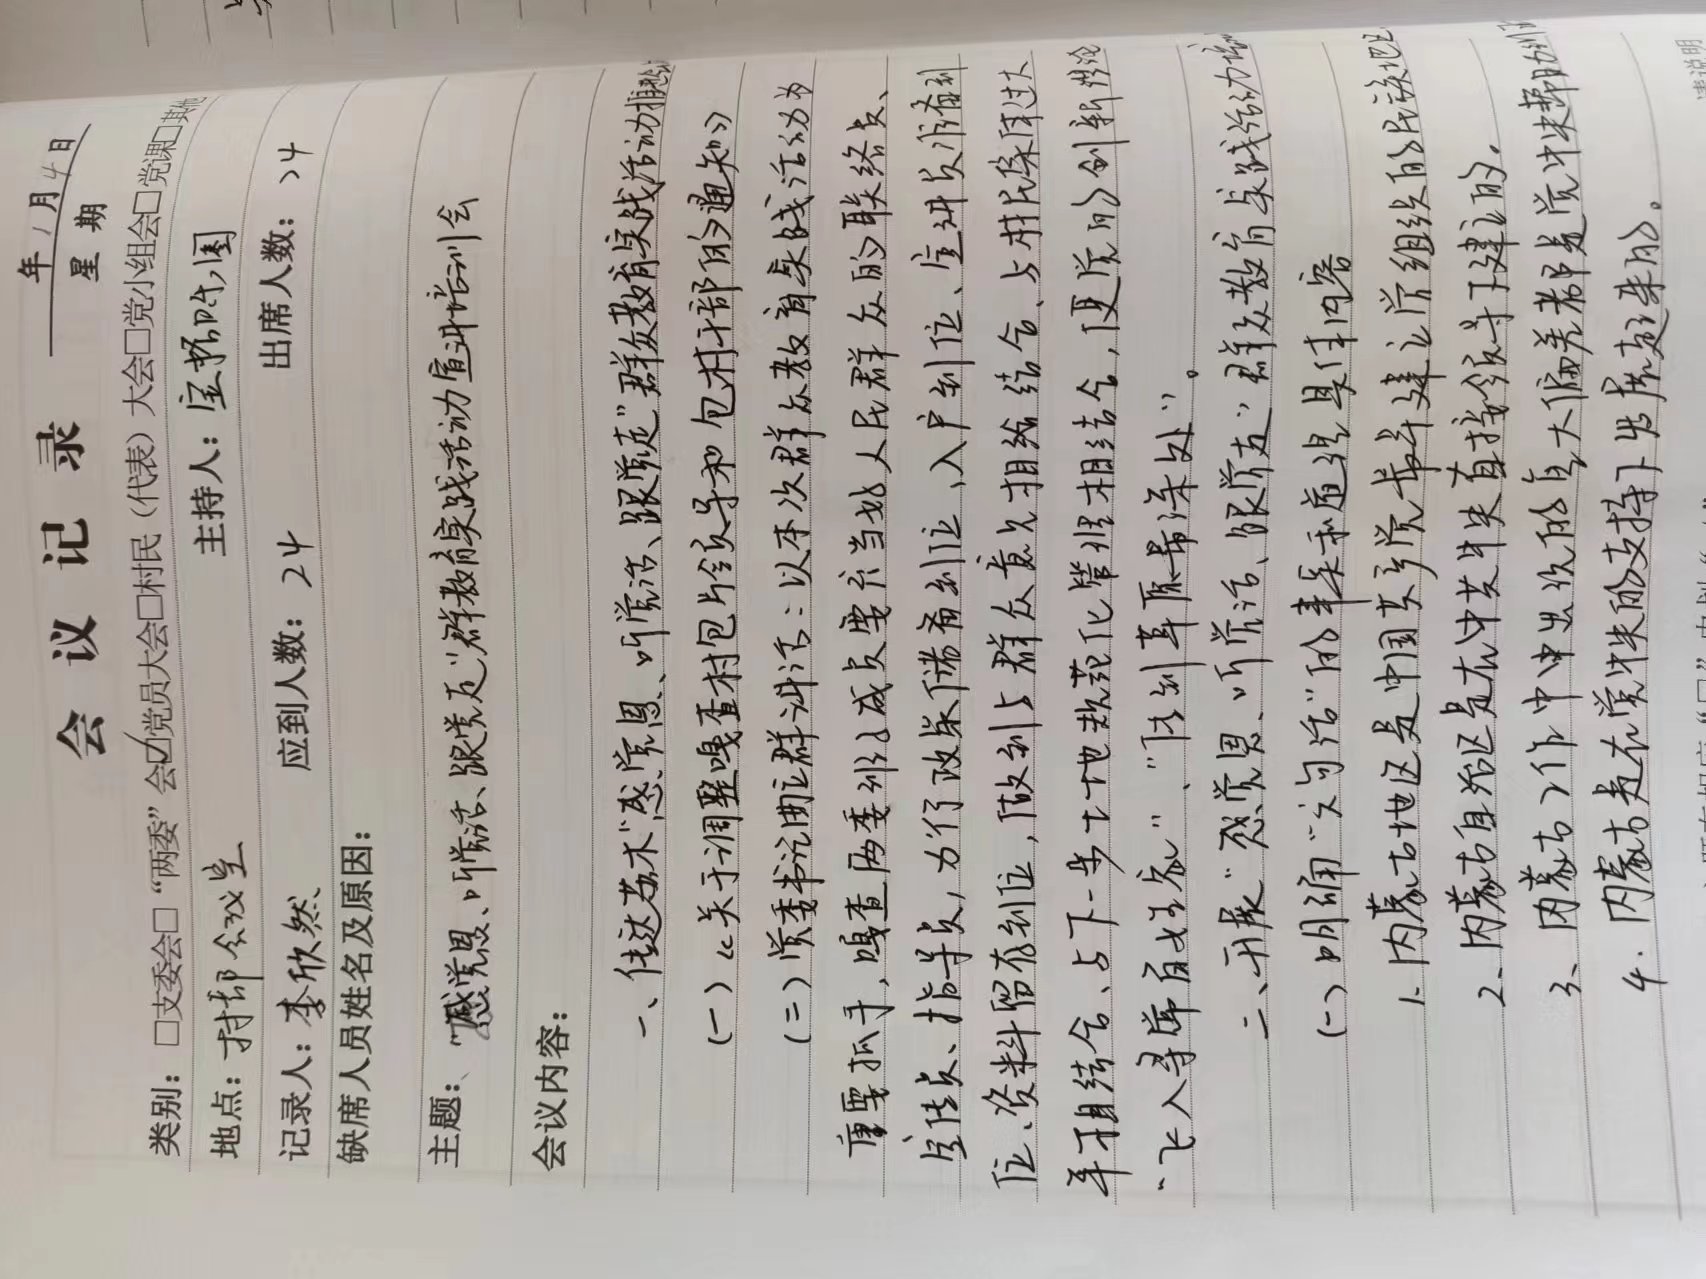 会议记录
年 1月4日
星期
类别：□支委会□“两委”会☑党员大会□村民（代表）大会□党小组会□党课□其他
地点：村部会议室 主持人：宝
记录人：李欣然 应到人数：24 出席人数：24
缺席人员姓名及原因：
主题：“感党恩、听党话、跟党走”群教育实践活动宣讲培训会
会议内容：
一、传达苏木“感党恩、听党话、跟党走”群众教育实践活动推
（一）《关于调整嘎查村包片领导和包村干部的通知》
（二）党委书记 群讲话：以本次群众教育实践活动为
重要抓手，嘎查两委班子成员要充当好人民群众的联络员、
宣传员、指导员，力行政策传播到位、入户到位、宣讲员准备到
位、资料留存到位，做到与群众意见相结合、与村民条件过大
年相结合、与下一步土地规范化管理相结合，使党的创新理论
“飞入寻常百姓家”、“传到草原最深处”。
二、开展“感党恩、听党话、跟党走”群众教育实践活动培
（一）明确“六句话”的事实和道理具体内容
1、内蒙古地区是中国共产党最早建立党组织的民族地区
2、内蒙古自治区是在党中央直接领导下建立的。
3、内蒙古工作中出现的重大偏差都是党中央帮助纠
4、内蒙古是在党中央的支持下发展起来的。
请说明